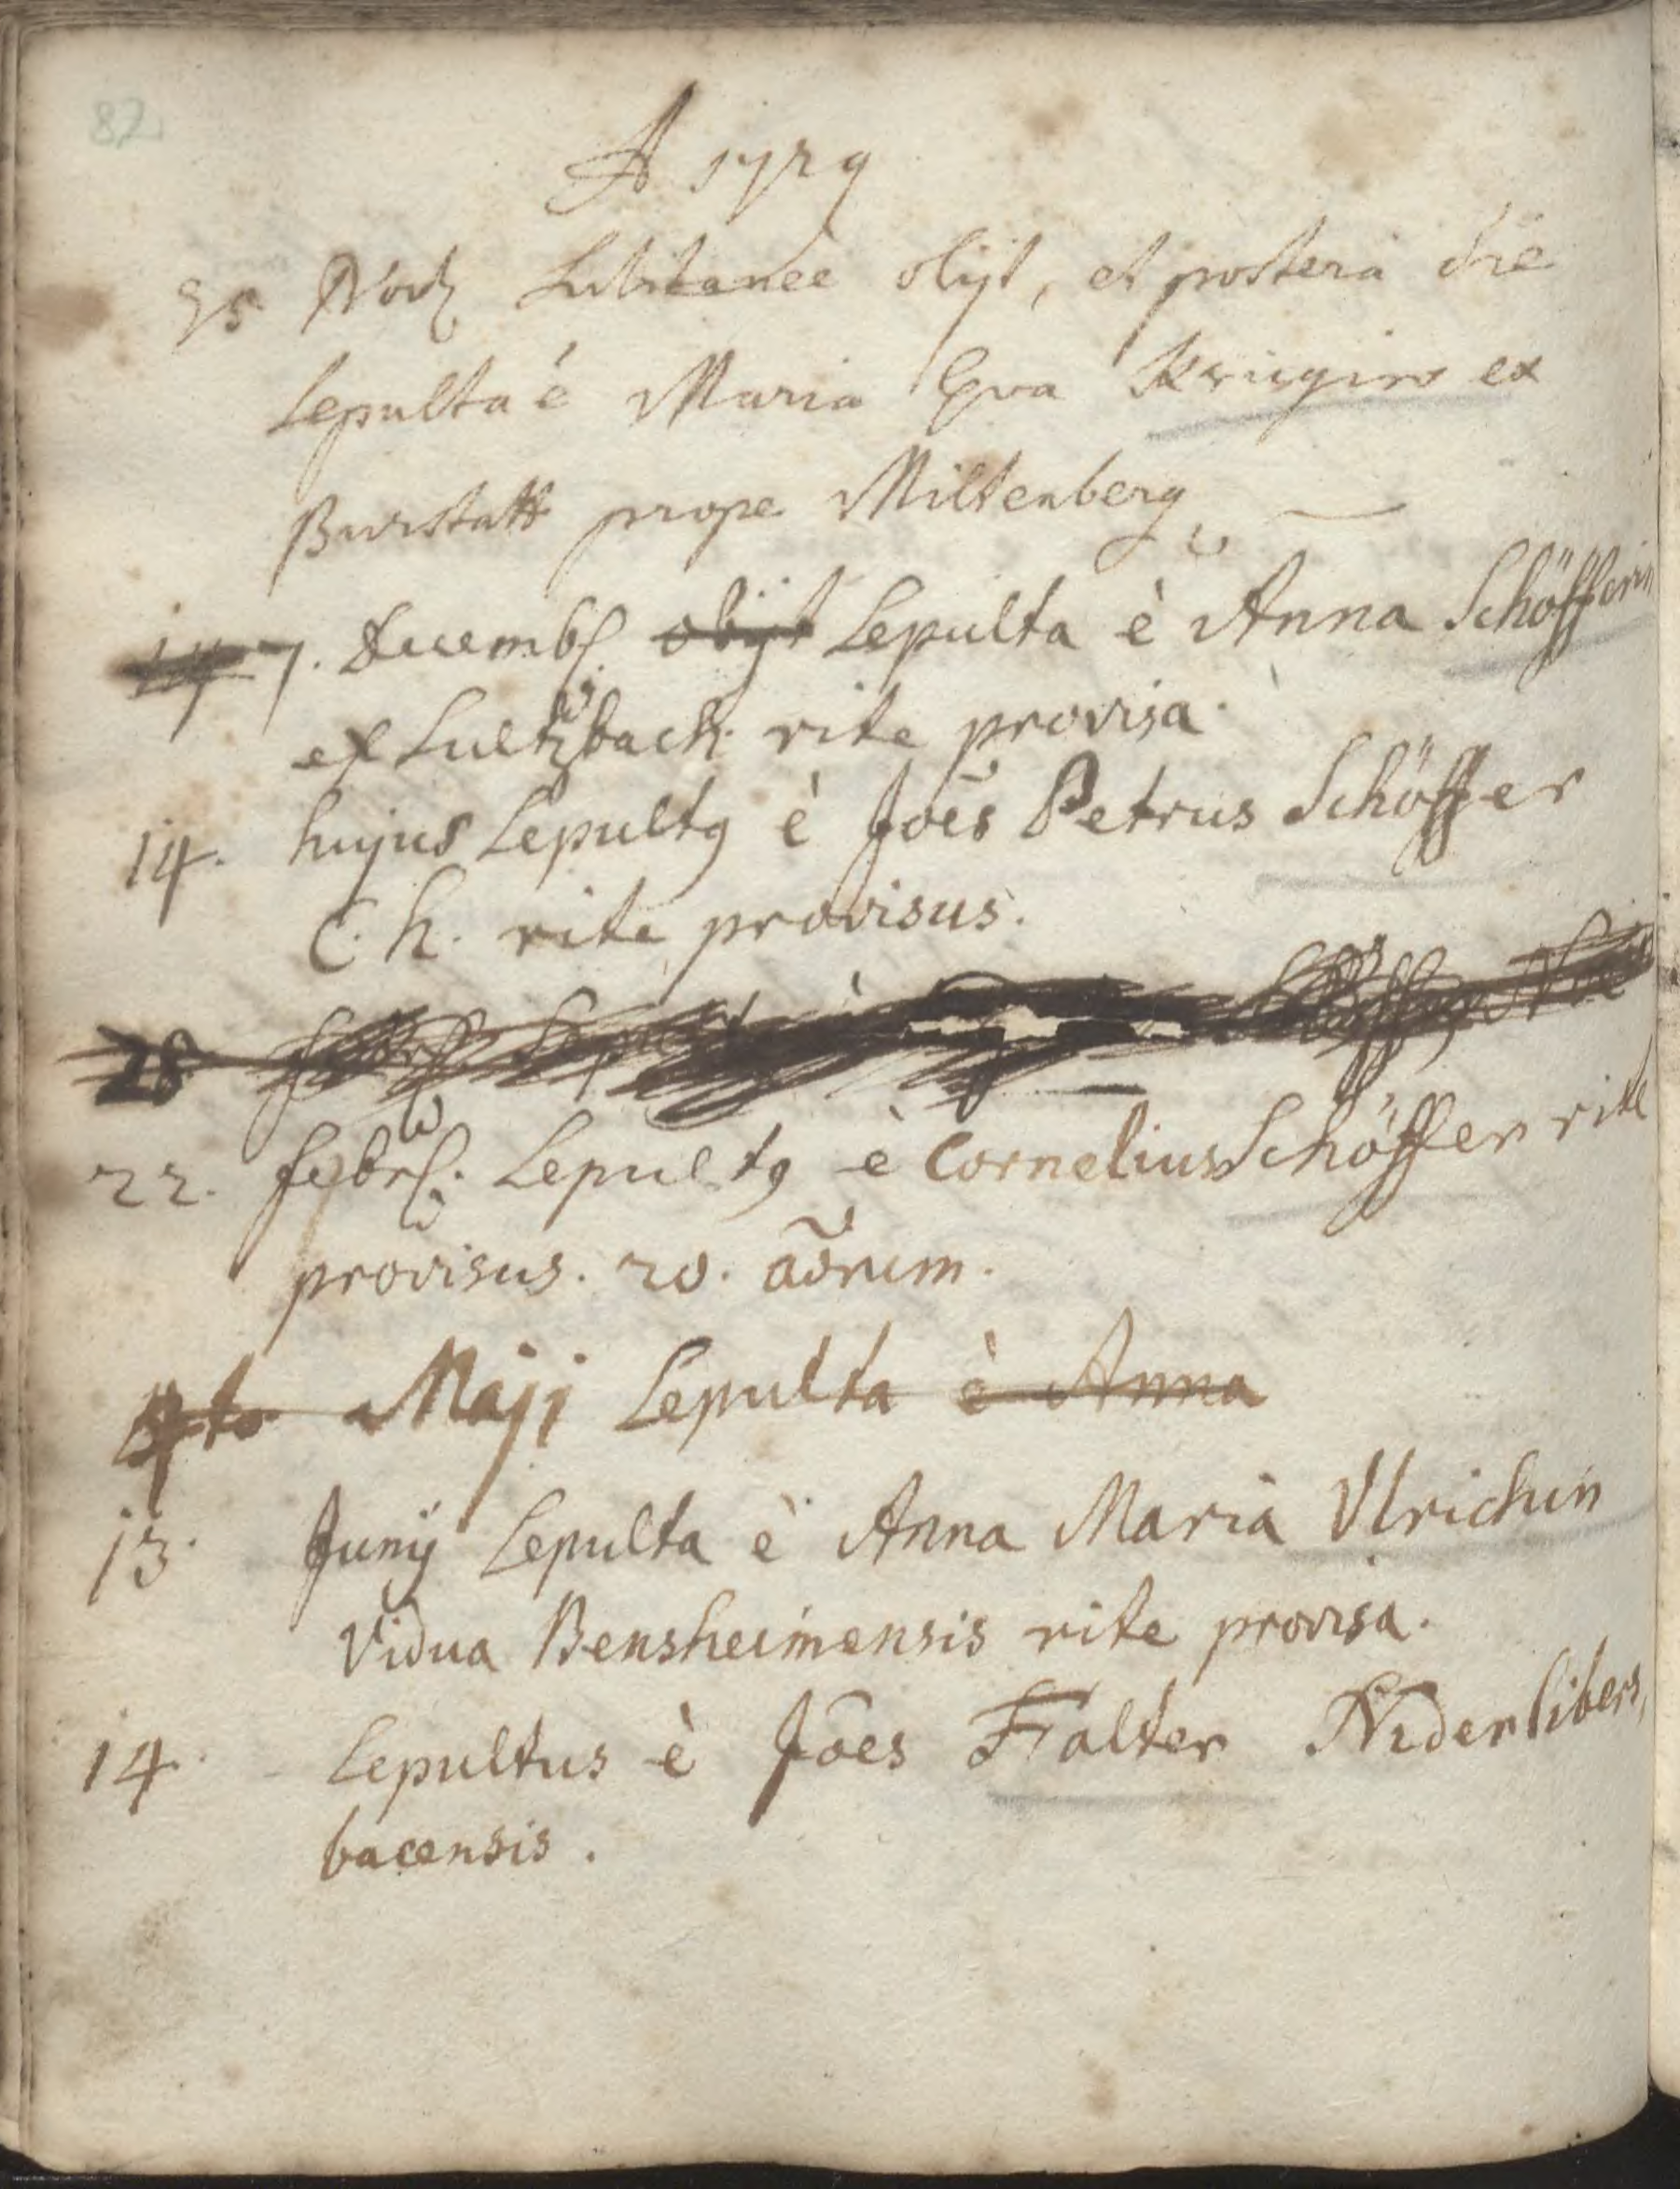 82
A 1729
25 Novb Subitanee obijt, et postera die
Sepulta è Maria Eva Krugin ex
Burstatt prope Miltenberg
7. Decemb. obijt Sepulta è Anna Schöfferin
ex Sultzbach rite provisa.
14. hujus Sepultq è Joes Petrus Schöffer
C. h. rite provisus.
28
22. febr. Sepultq è Cornelius Schöffer rite
provisus. 20. aorum.
4to Maji Sepulta è Anna
13. Junij Sepulta è Anna Maria Ulrichin
Vidua Bensheimensis rite provisa.
14. Sepultus è Joes Falter Niderlibers,
bacensis.